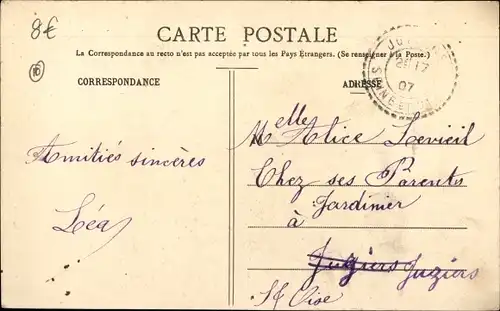 8€
CARTE POSTALE
La Correspondance au recto n'est pas acceptée par tous les Pays Etrangers. (Se renseigner à la Poste.)
16
CORRESPONDANCE
ADRESSE
17
07
Amitiés sincères
Léa
Melle Alice Levieil
Chez ses Parents
Jardinier
à
Juziers Juziers
St Oise